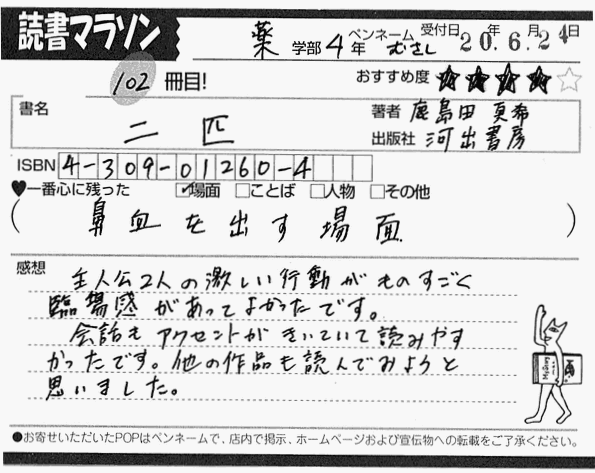 読書マラソン
薬学部4年 ペンネームむさし 受付日20年6月24日
102冊目! おすすめ度★★★★☆
書名 二匹
著者 鹿島田真希
出版社 河出書房
ISBN 4-309-01260-4
♥一番心に残った ☑場面 □ことば □人物 □その他
(鼻血を出す場面)
感想 主人公2人の激しい行動がものすごく
臨場感があってよかったです。
会話もアクセントがきいていて読みやす
かったです。他の作品も読んでみようと
思いました。
●お寄せいただいたPOPはペンネームで、店内で掲示、ホームページおよび宣伝物への転載をご了承ください。